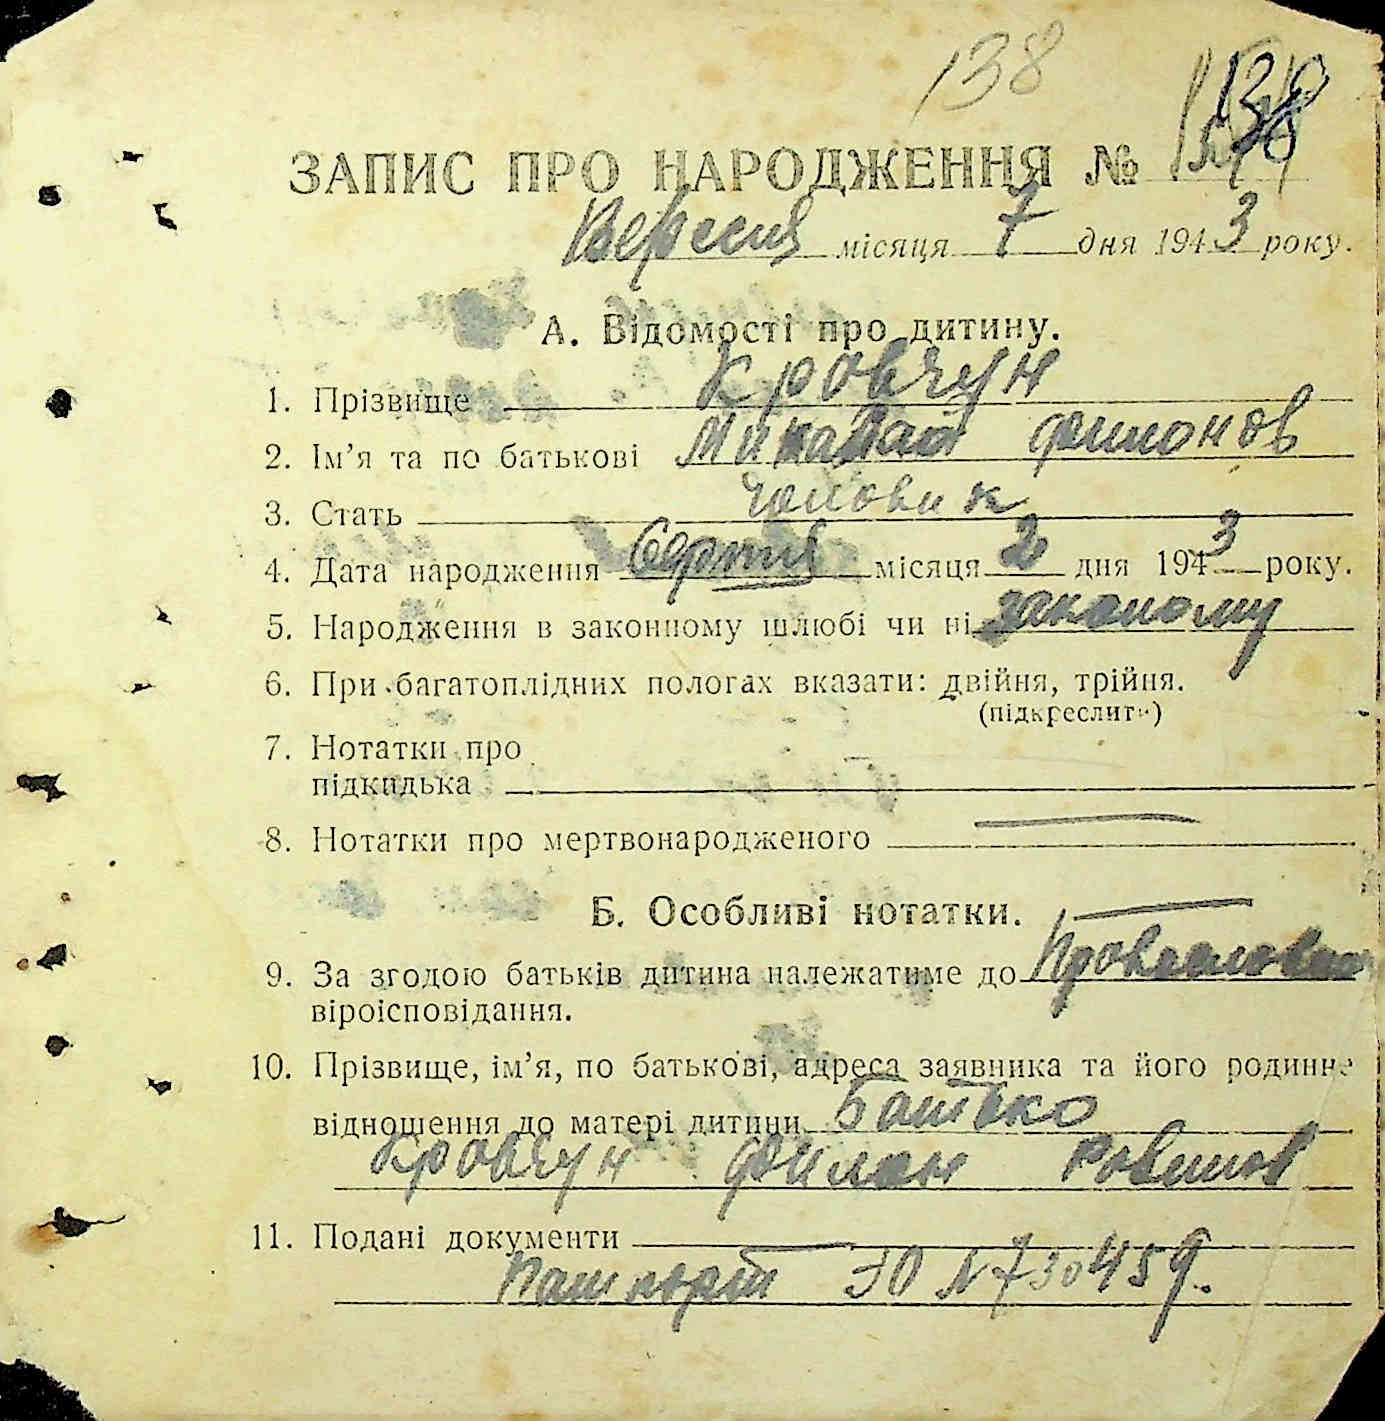 138
138
ЗАПИС ПРО НАРОДЖЕННЯ №
Вересня місяця 7 дня 1943 року.
А. Відомості про дитину.
1. Прізвище Кровчун
2. Ім’я та по батькові Миколай Филонов
3. Стать Чоловик
4. Дата народження Серпня місяця 2 дня 1943 року.
5. Народження в законному шлюбі чи ні законому
6. При багатоплідних пологах вказати: двійня, трійня.
(підкреслити)
7. Нотатки про
підкидька
8. Нотатки про мертвонародженого
Б. Особливі нотатки.
9. За згодою батьків дитина належатиме до
віроісповідання.
10. Прізвище, ім’я, по батькові, адреса заявника та його родинне
відношення до матері дитини Батько
Кровчун Филон
11. Подані документи
Пашпорт ЭО № 730459.